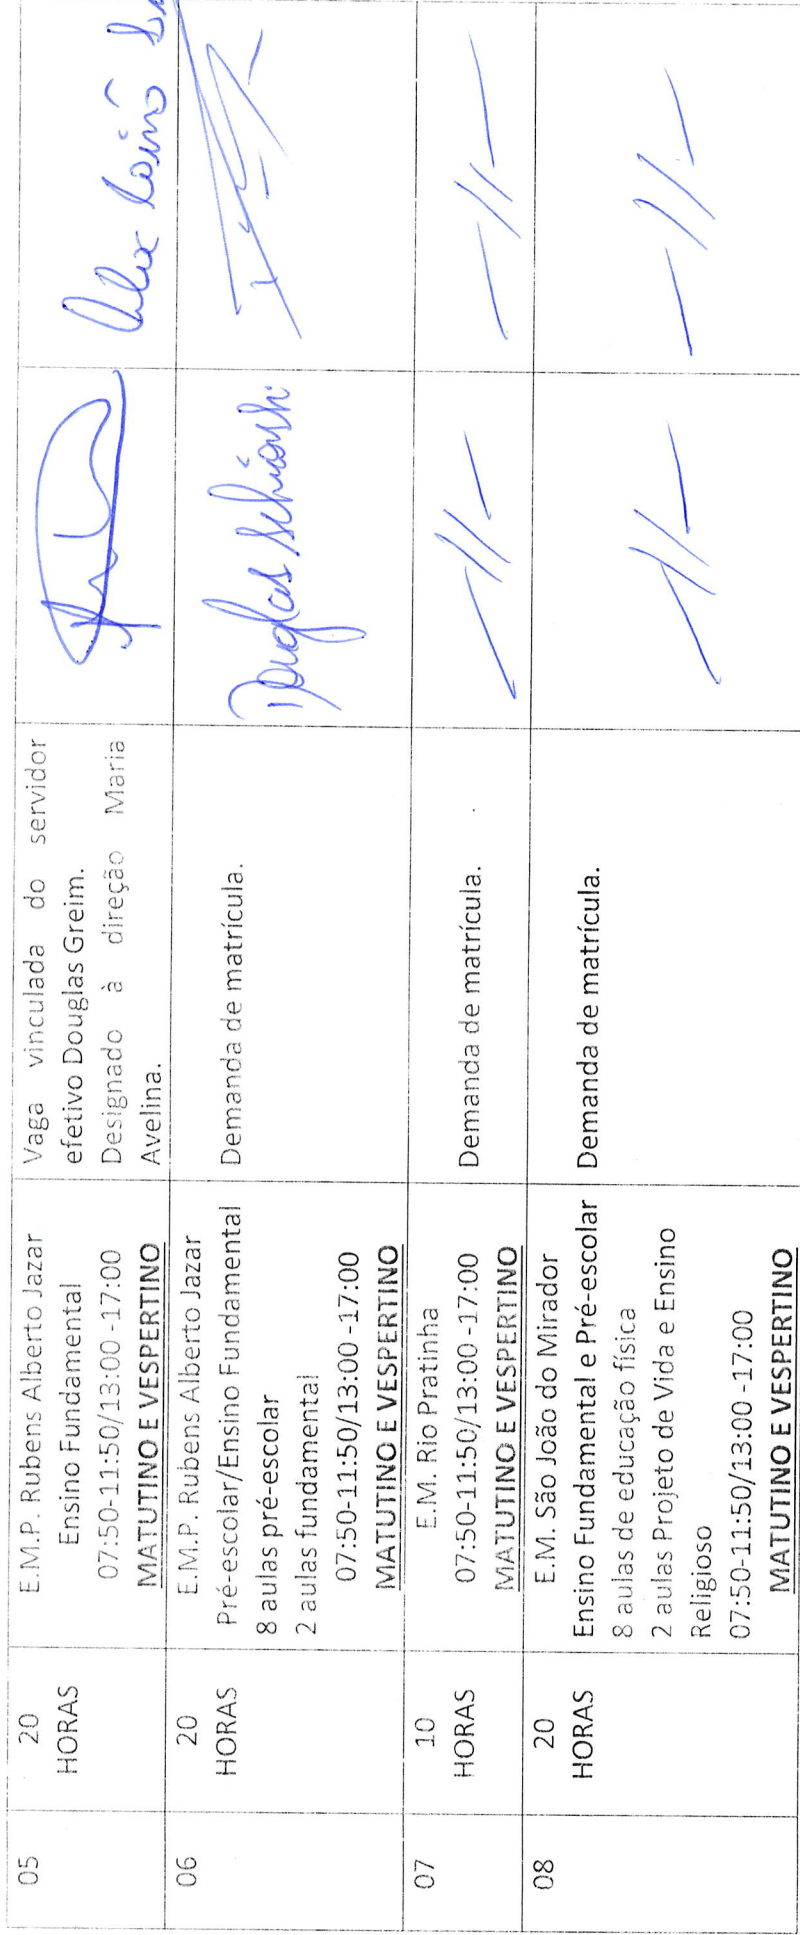 05
20
HORAS
E.M.P. Rubens Alberto Jazar
Ensino Fundamental
07:50-11:50/13:00 -17:00
MATUTINO E VESPERTINO
Vaga vinculada do servidor
efetivo Douglas Greim.
Designado à direção Maria
Avelina.
06
20
HORAS
E.M.P. Rubens Alberto Jazar
Pré-escolar/Ensino Fundamental
8 aulas pré-escolar
2 aulas fundamental
07:50-11:50/13:00 -17:00
MATUTINO E VESPERTINO
Demanda de matrícula.
Douglas
07
10
HORAS
E.M. Rio Pratinha
07:50-11:50/13:00 -17:00
MATUTINO E VESPERTINO
Demanda de matrícula.
08
20
HORAS
E.M. São João do Mirador
Ensino Fundamental e Pré-escolar
8 aulas de educação física
2 aulas Projeto de Vida e Ensino
Religioso
07:50-11:50/13:00 -17:00
MATUTINO E VESPERTINO
Demanda de matrícula.